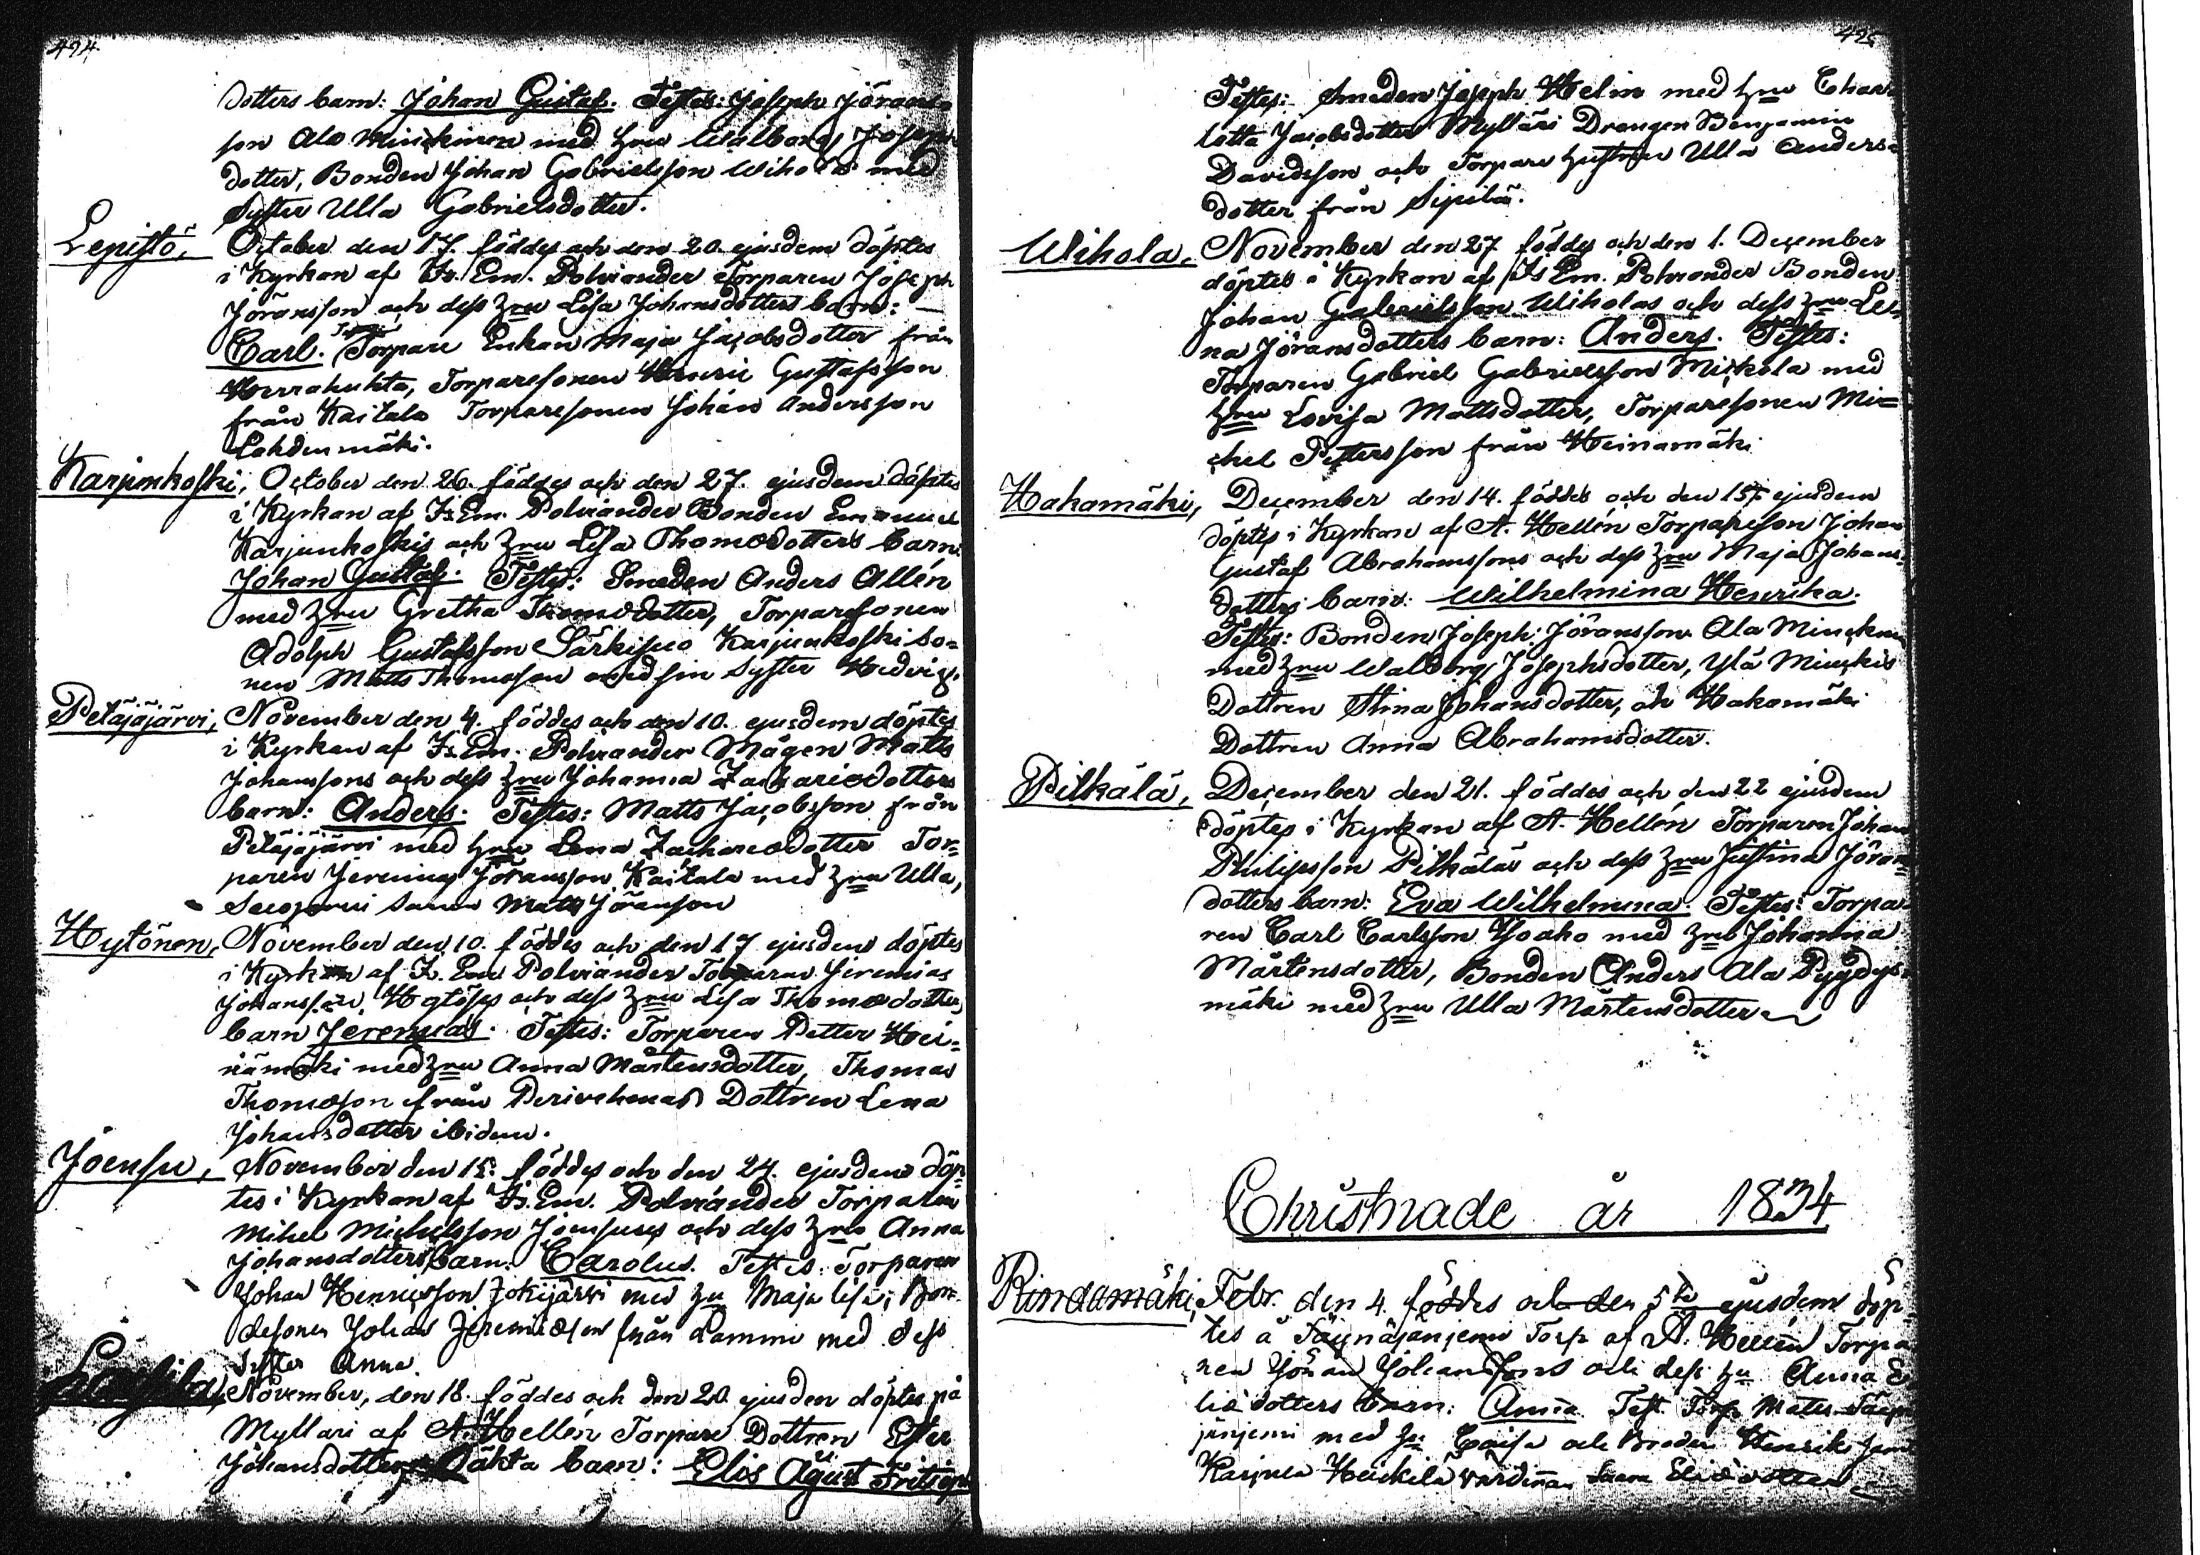 494.
dotters barn: Johan Gustaf. Testes: Joseph Jörans-
son Ala Minckinen med hru Walborg Joseph
dotter, Bonden Johan Gabrielsson Wihola med
Syster Ulla Gabrielsdotter.
Lepistö, October den 17. föddes och den 20. ejusdem döptes
i Kyrkan af Is. Em. Polviander Torparen Joseph
Jöransson och dess hru Lisa Johansdotters barn:
Carl. Torpare Enkan Maja Jacobsdotter från
Herrakuhta, Torparesonen Henric Gustafsson
från Kaitala Torparesonen Johan Andersson
Lahdenmäki.
Karjunkoski, October den 26. föddes och den 27. ejusdem döptes
i Kyrkan af Is Em. Polviander Bonden Emanuel
Karjunkoskis och hru Lisa Thomædotters barn:
Johan Gustaf. Testes: Smeden Anders Allén
med hru Gretha Thomædotter, Torparesonen
Adolph Gustafsson Särkisuo Karjunkoski So-
nen Matts Thomæson med sin Syster Hedvig.
Petäjäjärvi, November den 4. föddes och den 10. ejusdem döptes
i Kyrkan af Is. Em. Polviander Mågen Matts
Johanssons och dess hru Johanna Zachariædotters
barn: Anders. Testes: Matts Jacobsson från
Petäjäjärvi med hru Lena Zachariædotter Tor-
paren Jeremias Jöransson Kaitala med hru Ulla,
Matts Jöransson
Hytönen, November den 10. föddes och den 17 ejusdem döptes
i Kyrkan af Is. Em Polviander Torparen Jeremias
Johansson Hytöses och dess hru Lisa Thomædotters
barn Jeremias. Testes: Torparen Petter Hei-
nämäki med hru Anna Mårtensdotter, Thomas
Thomæson från Dottren Lena
Johansdotter ibidem.
Joensu, November den 15. föddes och den 24. ejusdem döp-
tes i Kyrkan af Is. Em. Polviander Torparen
Mihel Michelsson Joensuus och dess hru Anna
Johansdotters barn: Carolus. Testes: Torparen
Johan Henricsson Jokijärvi med hu Maja Lisa; Bon-
desonen Johan Jeremiæson från Lammi med dess
Syster Anna.
November, den 18. föddes och den 20. ejusdem döptes på
Myllari af A. Hellén Torpare Dottren Ester
Johansdotters oäkta barn: Elis August
495
Testes: Smeden Joseph Helin med hru Char-
lotta Jacobsdotter Mylläri Drengen Benjamin
Davidsson och Torpare hustrun Ulla Anders-
dotter från Sipilä.
Wihola, November den 27 föddes och den 1. December
döptes i Kyrkan af Is Em. Polviander Bonden
Johan Gabrielsson Wiholas och dess hru Le-
na Jöransdotters barn: Anders. Testes:
Torparen Gabriel Gabrielsson Mickola med
hru Lovisa Mattsdotter, Torparesonen Mi-
chel Pettersson från Heinamäki
Hakamäki, December den 14. föddes och den 15. ejusdem
döptes i Kyrkan af A. Hellén Torpareson Johan
Gustaf Abrahamssons och dess hru Maja Johans-
dotters barn: Wilhelmina Henrika.
Testes: Bonden Joseph Jöransson Ala Minckin
med hru Walborg Josephsdotter, Ylä Minckis
Dottren Stina Johansdotter, och Hakamäki
Dottren Anna Abrahamsdotter.
Pitkälä, December den 21. föddes och den 22 ejusdem
döptes i Kyrkan af A. Hellén Torparen Johan
Philipsson Pitkäläs och dess hru Justina Jörans-
dotters barn: Eva Wilhelmina. Testes: Torpa-
ren Carl Carlsson Yoaho med hru Johanna
Mårtensdotter, Bonden Anders Ala Pyydys-
mäki med hru Ulla Mårtensdotter
Christnade år 1834
Rindamäki, Febr. den 4. föddes och den 5te ejusdem döp-
tes å Torp af A. Hellén Torpa-
ren Johan Johanssons och dess hu Anna E-
liædotters barn: Anna. Test. Torp. Matts
med hu Caisa och Brodren Henrik samt
Heickilä värdinan Eliædotter